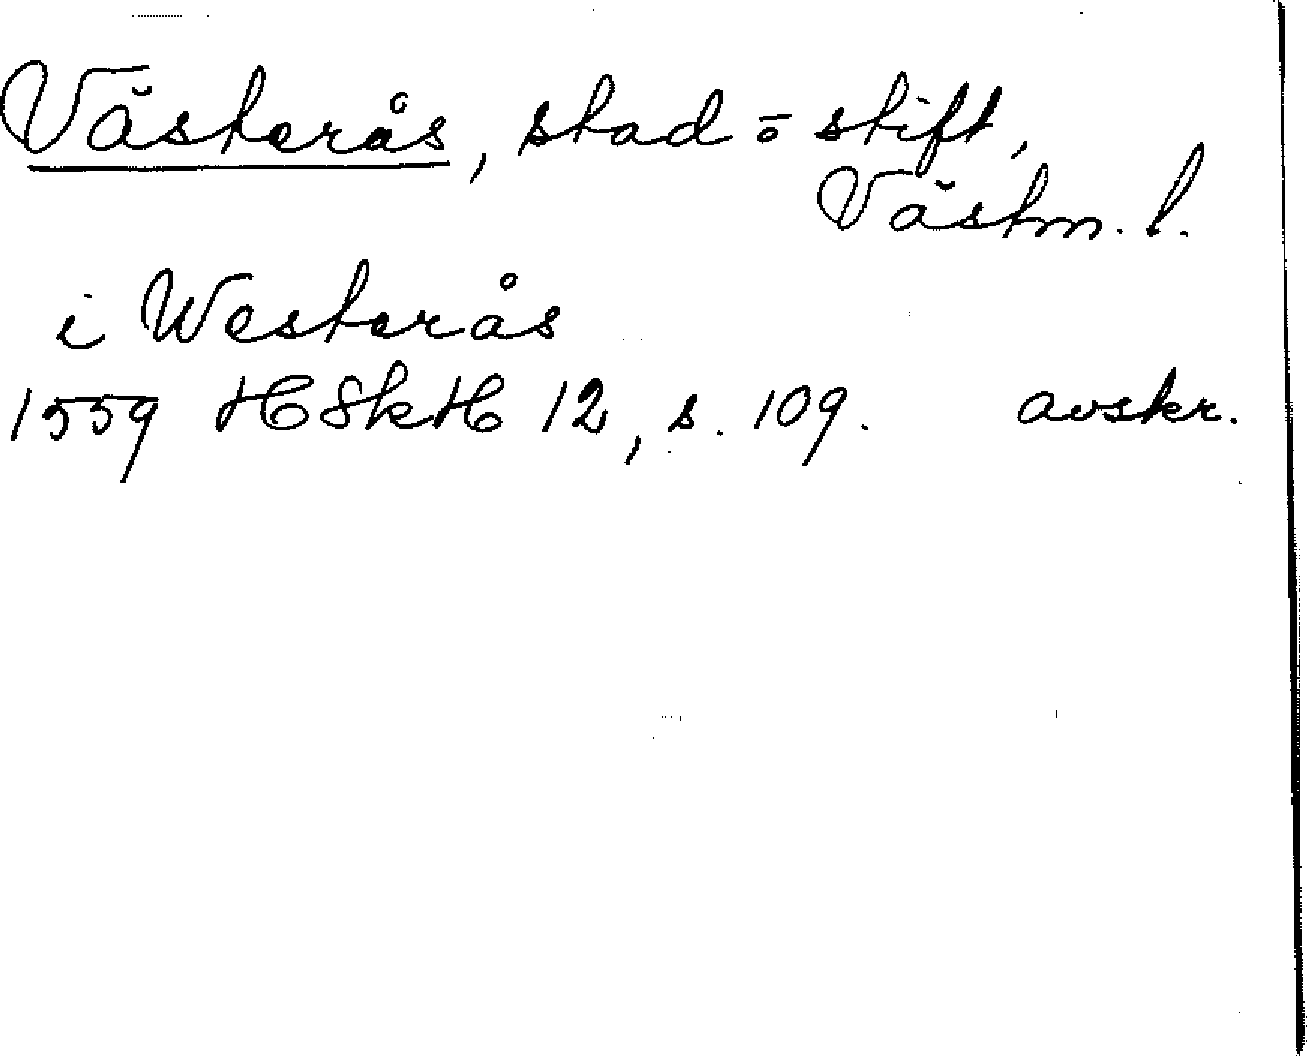 Västerås, stad o stift,
Västm. l.
i Westerås
1559 HSkH 12, s. 109. avskr.